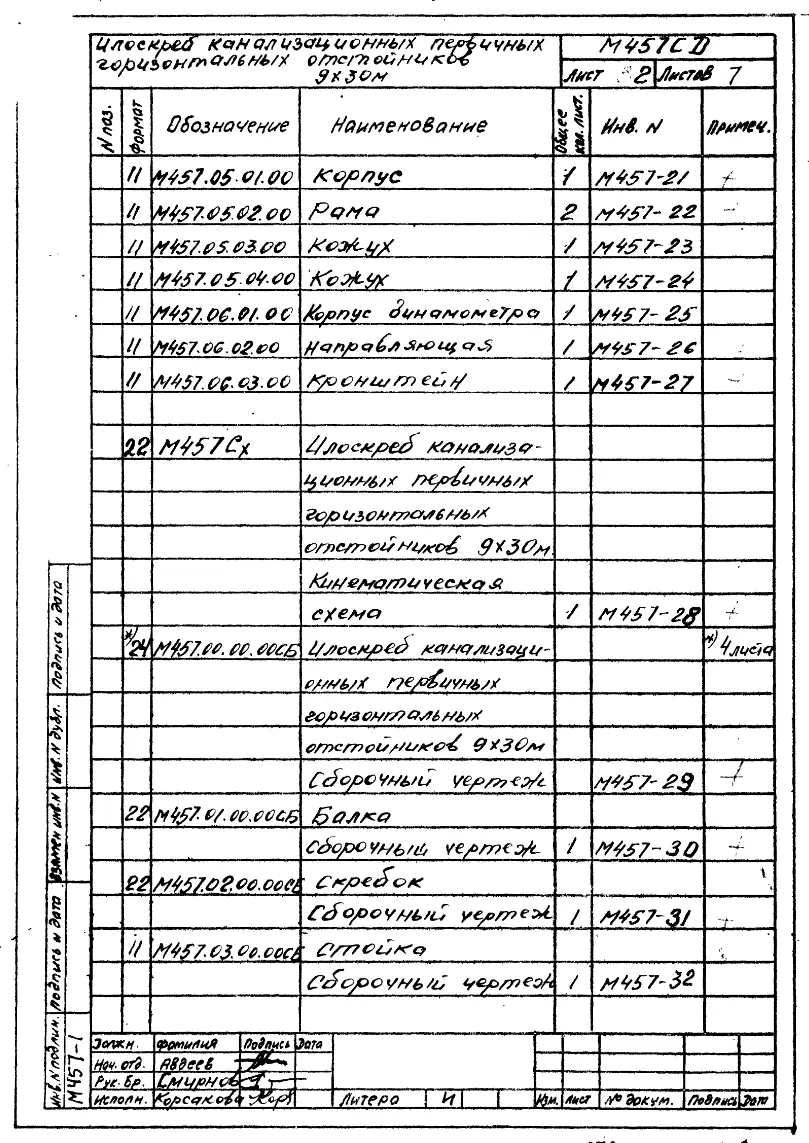 Илоскреб канализационных первичных
горизонтальных отстойников
9х30м
М457СД
Лист 2 Листов 7
N поз. Формат Обозначение Наименование Общее кол. лист. Инв. N Примеч.
11 М457.05.01.00 Корпус 1 М457-21 +
11 М457.05.02.00 Рама 2 М457-22 -
11 М457.05.03.00 Кожух 1 М457-23
11 М457.05.04.00 Кожух 1 М457-24
11 М457.06.01.00 Корпус динамометра 1 М457-25
11 М457.06.02.00 Направляющая 1 М457-26
11 М457.06.03.00 Кронштейн 1 М457-27 -
22 М457Сх Илоскреб канализа-
ционных первичных
горизонтальных
отстойников 9х30м.
Кинематическая
схема 1 М457-28 +
*) 24 М457.00.00.00СБ Илоскреб канализаци- *) 4 листа
онных первичных
горизонтальных
отстойников 9х30м
Сборочный чертеж М457-29 +
22 М457.01.00.00СБ Балка
Сборочный чертеж 1 М457-30 +
22 М457.02.00.00СБ Скребок
Сборочный чертеж 1 М457-31 +
11 М457.03.00.00СБ Стойка
Сборочный чертеж 1 М457-32
Должн. Фамилия Подпись Дата
Нач. отд. Авдеев
Рук. бр. Смирнов
Исполн. Корсакова Корс
Литера И
Изм. Лист № докум. Подпись Дата
Инв. N подлин. Подпись и дата Взамен инв. N Инв. N дубл. Подпись и дата
М457-1